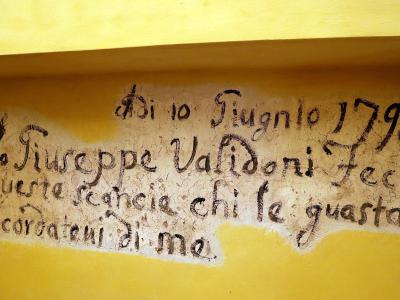 Adi 10 Giugnio 179
Giuseppe Validoni Fec
ueste scancie chi le guasta
cordateui di me